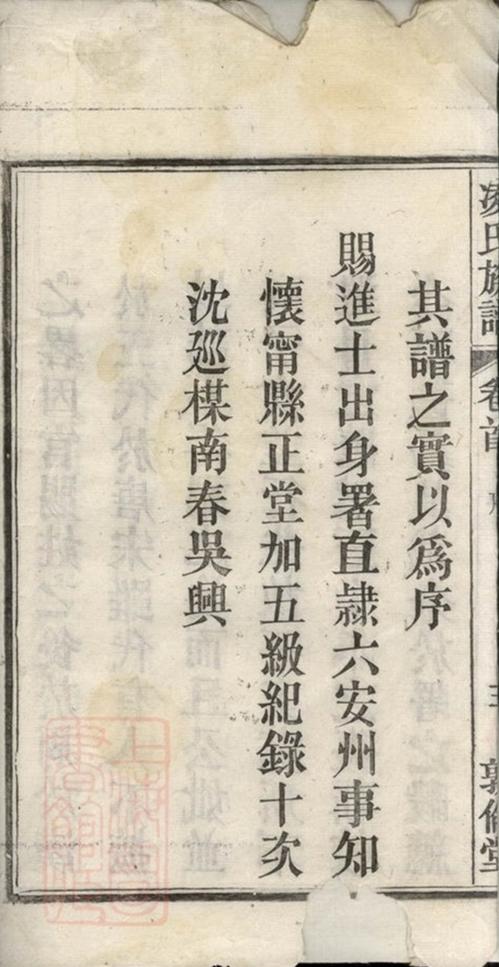 其譜之實以爲序
賜進士出身署直隸六安州事知
懷甯縣正堂加五級紀錄十次
沈廵楳南春吳興
氏族譜
卷首
敦倫堂